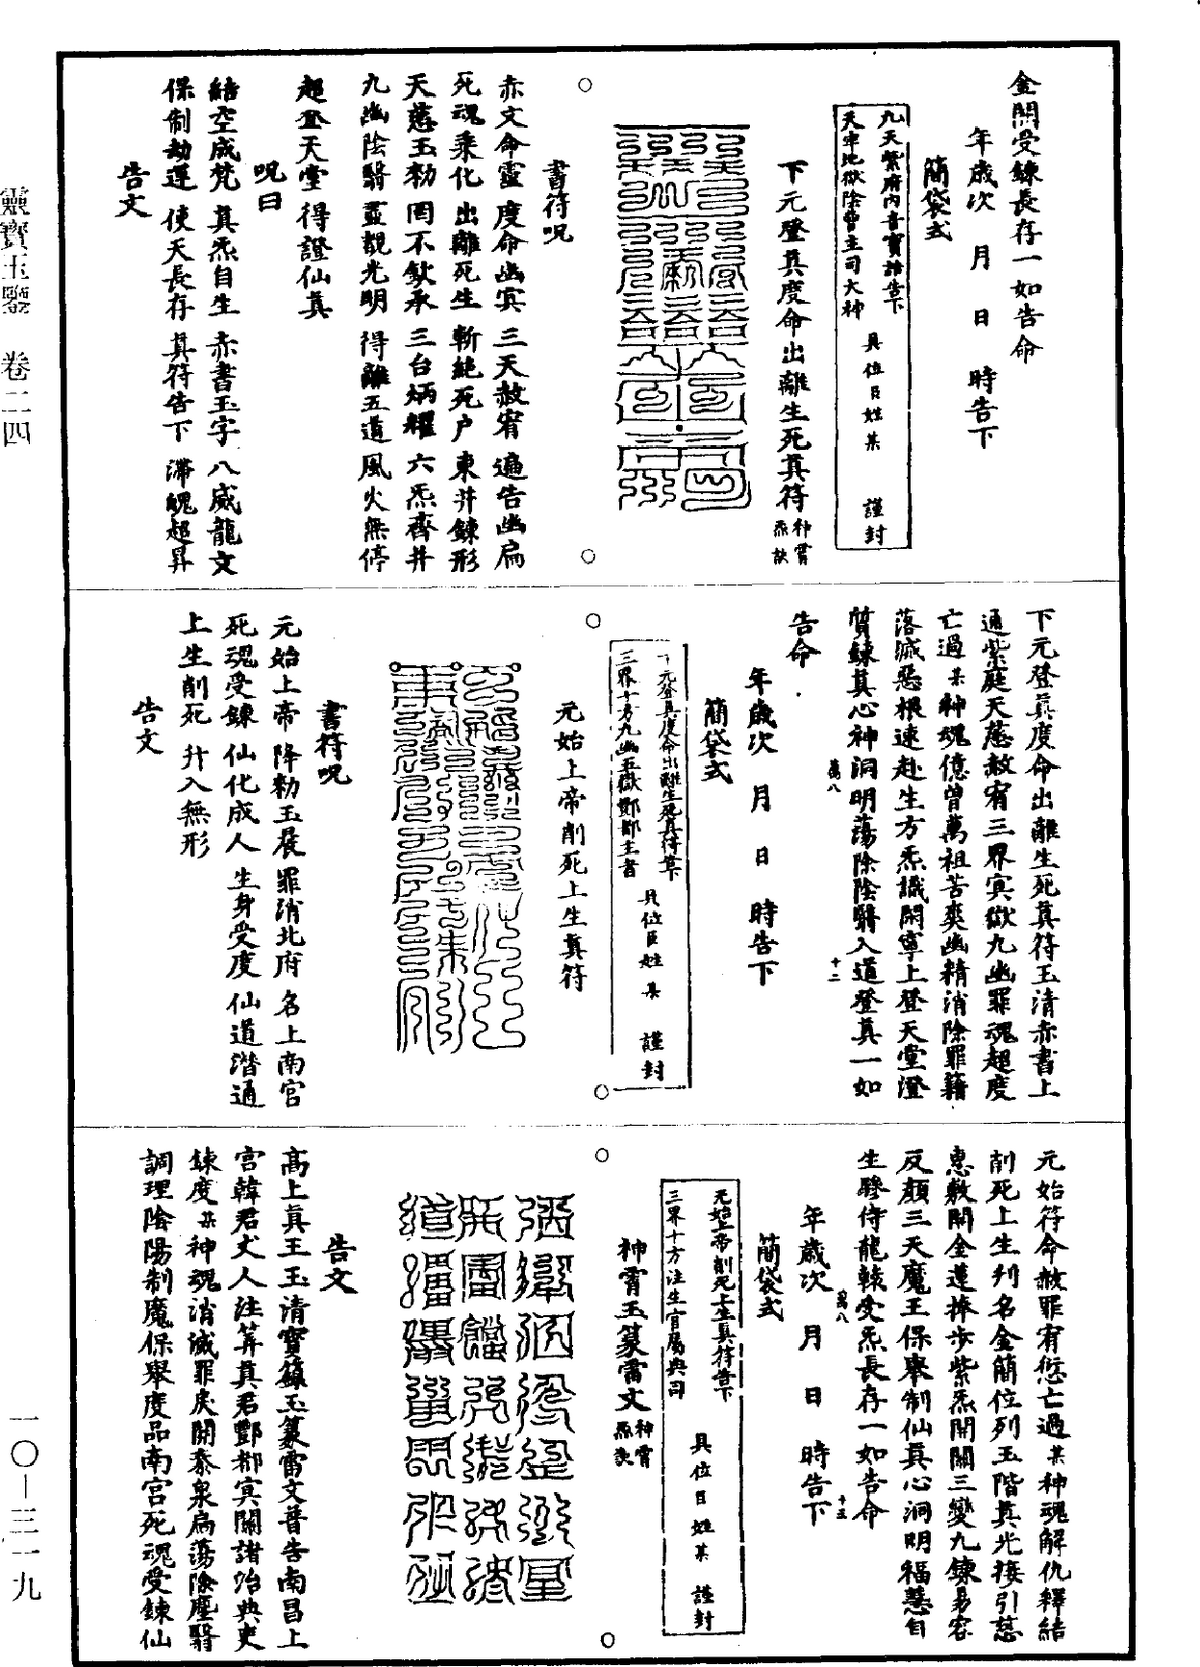 金闕受鍊長存一如告命
年歲次 月 日 時告下
簡袋式
九天紫府內音寶誥告下
天牢地獄陰曹主司大神
具位臣姓某 謹封
下元登真度命出離生死真符神霄炁訣
書符呪
赤文命靈 度命幽冥 三天赦宥 遍告幽扃
死魂乘化 出離死生 斬絕死戶 東井鍊形
天慈玉勑 罔不欽承 三台炳耀 六炁齊并
九幽陰翳 靈觀光明 得離五道 風火無停
超登天堂 得證仙真
呪曰
結空成梵 真炁自生 赤書玉字 八威龍文
保制劫運 使天長存 真符告下 滯魄超昇
告文
下元登真度命出離生死真符玉清赤書上
通紫庭天慈赦宥三界冥獄九幽罪魂超度
亡過某神魂億曾萬祖苦爽幽精消除罪籍
落滅惡根速赴生方炁識開寧上登天堂澄
質鍊真心神洞明蕩除陰翳入道登真一如
萬八 十二
告命
年歲次 月 日 時告下
簡袋式
下元登真度命出離生死真符告下
三界十方九幽五獄酆都主者
具位臣姓某 謹封
元始上帝削死上生真符
書符呪
元始上帝 降勑玉扆 罪消北府 名上南宮
死魂受鍊 仙化成人 生身受度 仙道潛通
上生削死 升入無形
告文
元始符命赦罪宥愆亡過某神魂解仇釋結
削死上生刊名金簡位列玉階真光接引慈
惠敷開金蓮捧步紫炁開關三變九鍊易容
反顏三天魔王保舉制仙真心洞明福慧自
生驂侍龍轅受炁長存一如告命
萬八 十三
年歲次 月 日 時告下
簡袋式
元始上帝削死上生真符告下
三界十方注生官屬典司
具位臣姓某 謹封
神霄玉篆雷文神霄炁訣
告文
高上真王玉清寶籙玉篆雷文普告南昌上
宮韓君丈人注筭真君酆都冥關諸冶典吏
鍊度某神魂消滅罪戾開泰泉扃蕩除塵翳
調理陰陽制魔保舉度品南宮死魂受鍊仙
靈寶玉鑒 卷二四
一〇—三一九